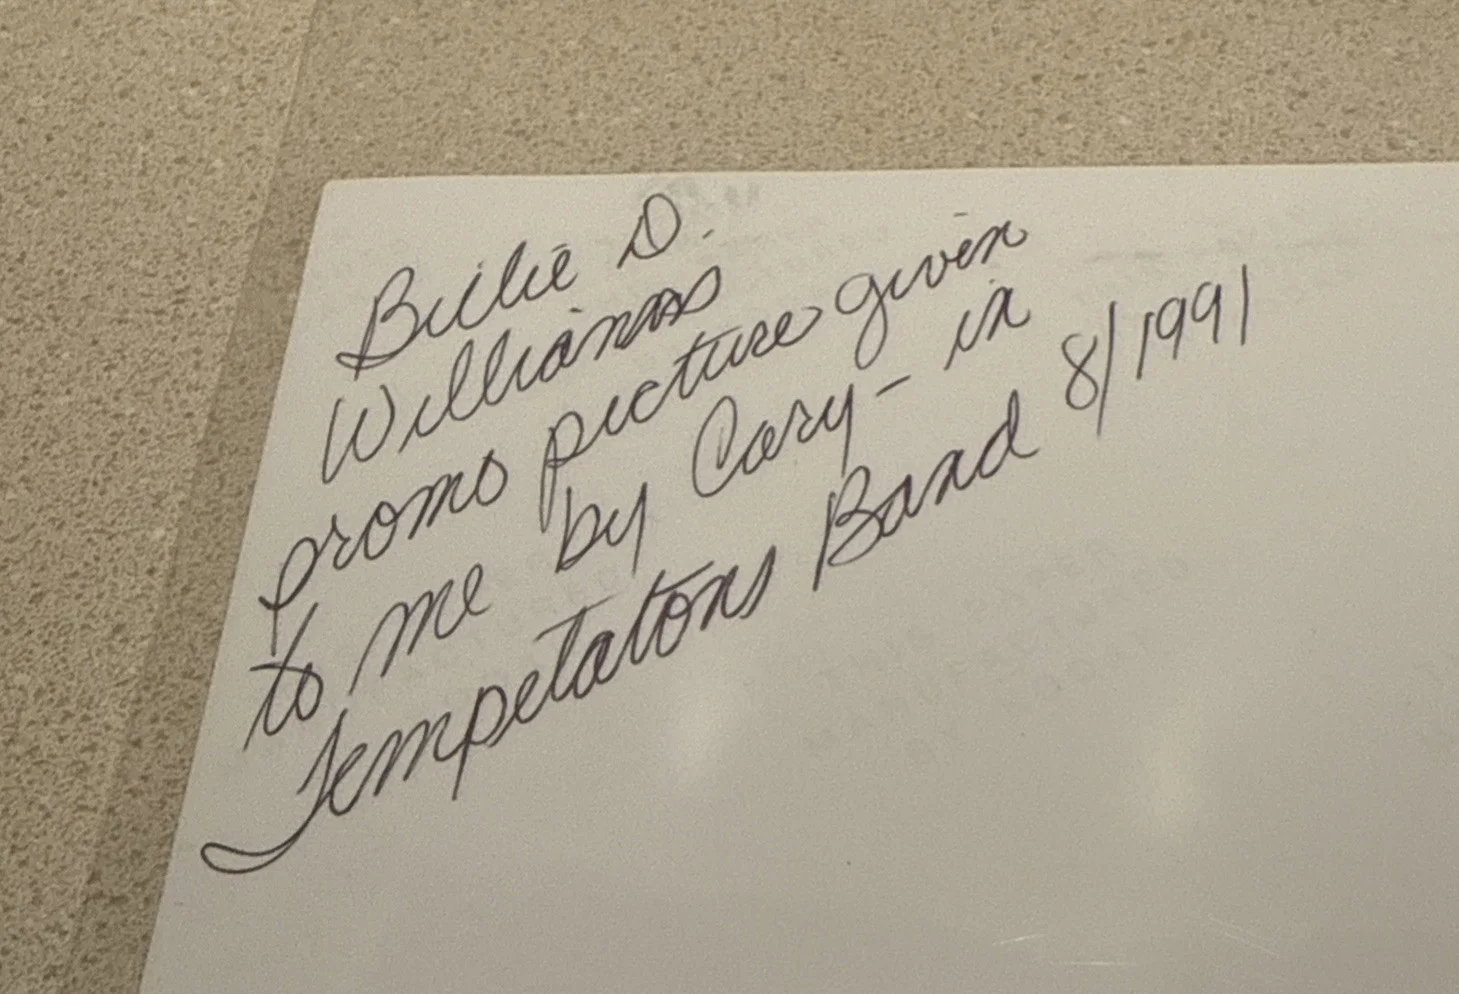 Billie D.
Williams
promo picture given
to me by Cary - in
Tempetatons Band 8/1991